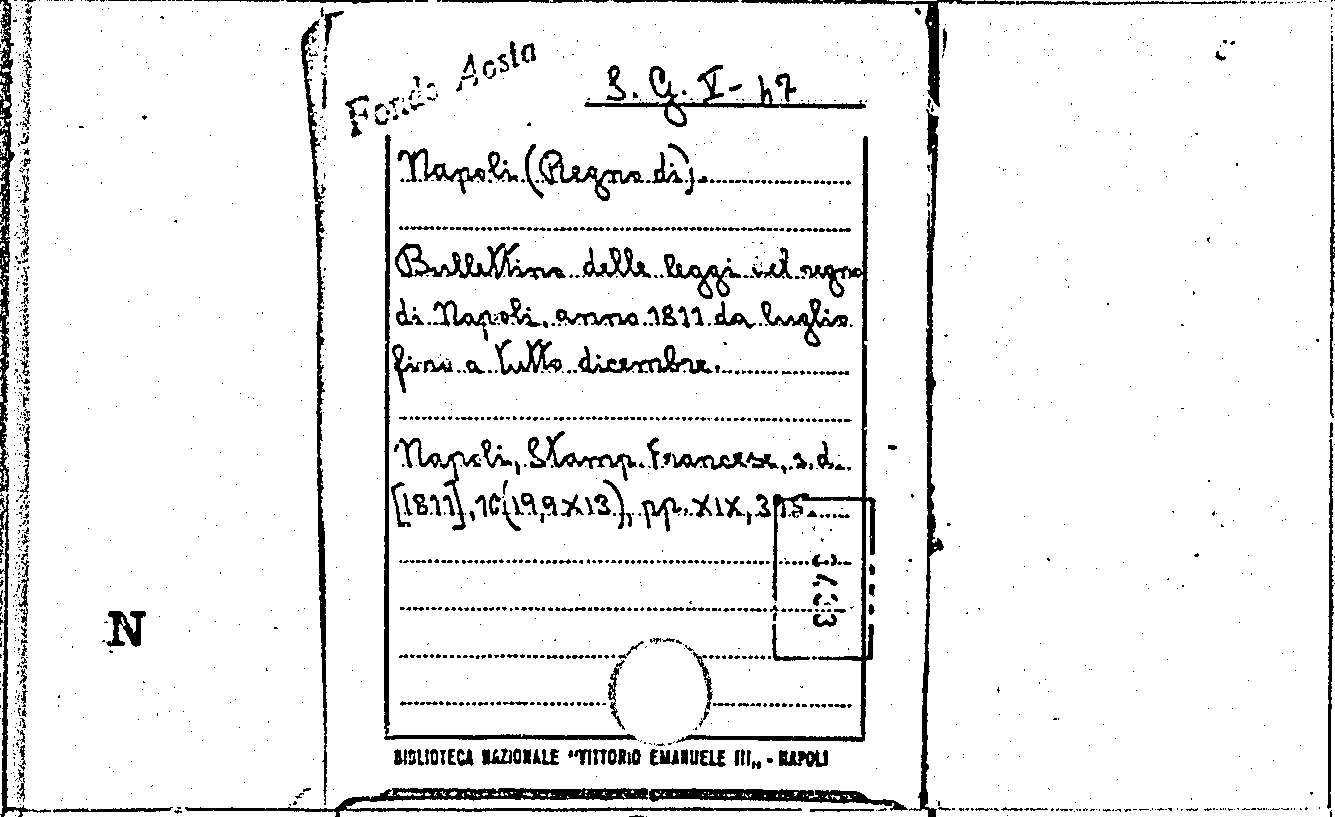 Fondo Aosta
3. G. V - 47
Napoli (Regno di).
Bullettino delle leggi del regno
di Napoli, anno 1811 da luglio
fino a tutto dicembre.
Napoli, Stamp. Francese, s.d.
[1811], 16 (19,9 x 13), pp. XIX, 315.
3433
N
BIBLIOTECA NAZIONALE "VITTORIO EMANUELE III„ - NAPOLI